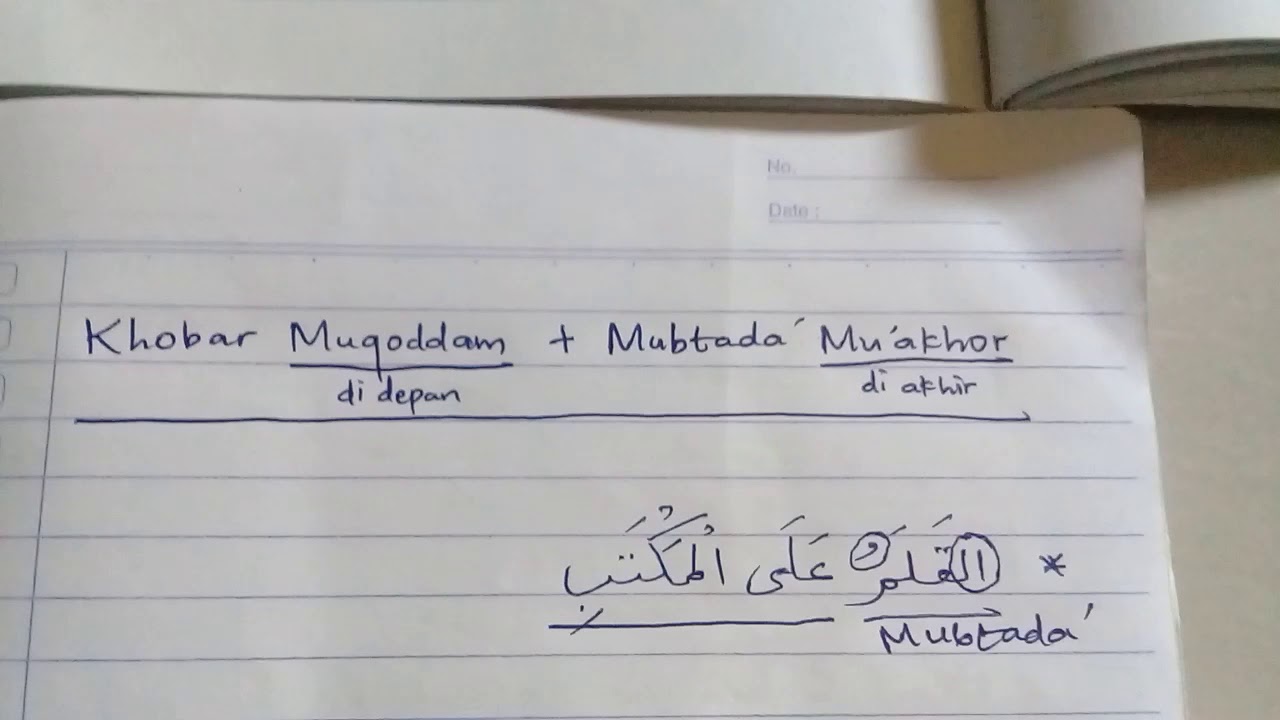 No.
Date :
Khobar Muqoddam + Mubtada' Mu'akhor
di depan di akhir
* القَلَمُ عَلَى الْمَكْتَبِ
Mubtada'